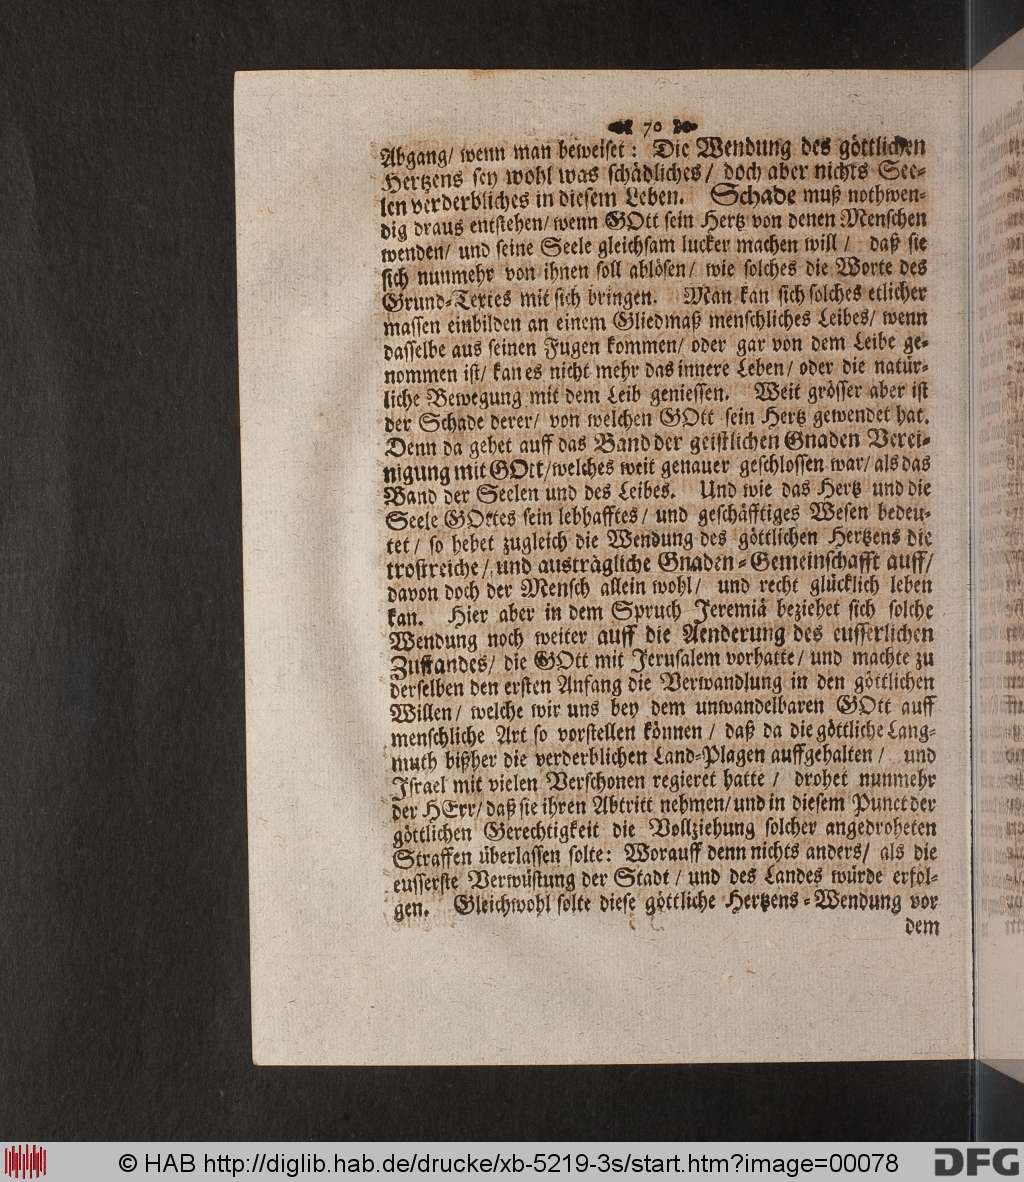 70
Abgang/ wenn man beweiset: Die Wendung des göttlichen
Hertzens sey wohl was schädliches/ doch aber nichts See-
len verderbliches in diesem Leben. Schade muß nothwen-
dig draus entstehen/ wenn GOtt sein Hertz von denen Menschen
wenden/ und seine Seele gleichsam lucker machen will/ daß sie
sich nunmehr von ihnen soll ablösen/ wie solches die Worte des
Grund-Textes mit sich bringen. Man kan sich solches etlicher
massen einbilden an einem Gliedmaß menschliches Leibes/ wenn
dasselbe aus seinen Fugen kommen/ oder gar von dem Leibe ge-
nommen ist/ kan es nicht mehr das innere Leben/ oder die natür-
liche Bewegung mit dem Leib geniessen. Weit grösser aber ist
der Schade derer/ von welchen GOtt sein Hertz gewendet hat.
Denn da gehet auff das Band der geistlichen Gnaden Verei-
nigung mit GOtt/ welches weit genauer geschlossen war/ als das
Band der Seelen und des Leibes. Und wie das Hertz und die
Seele GOttes sein lebhafftes/ und geschäfftiges Wesen bedeu-
tet/ so hebet zugleich die Wendung des göttlichen Hertzens die
trostreiche/ und austrägliche Gnaden-Gemeinschafft auff/
davon doch der Mensch allein wohl/ und recht glücklich leben
kan. Hier aber in dem Spruch Jeremiä beziehet sich solche
Wendung noch weiter auff die Aenderung des eusserlichen
Zustandes/ die GOtt mit Jerusalem vorhatte/ und machte zu
derselben den ersten Anfang die Verwandlung in den göttlichen
Willen/ welche wir uns bey dem unwandelbaren GOtt auff
menschliche Art so vorstellen können/ daß da die göttliche Lang-
muth bißher die verderblichen Land-Plagen auffgehalten/ und
Israel mit vielen Verschonen regieret hatte/ drohet nunmehr
der HErr/ daß sie ihren Abtritt nehmen/ und in diesem Punct der
göttlichen Gerechtigkeit die Vollziehung solcher angedroheten
Straffen überlassen solte: Worauff denn nichts anders/ als die
eusserste Verwüstung der Stadt/ und des Landes würde erfol-
gen. Gleichwohl solte diese göttliche Hertzens-Wendung vor
dem
© HAB http://diglib.hab.de/drucke/xb-5219-3s/start.htm?image=00078
DFG